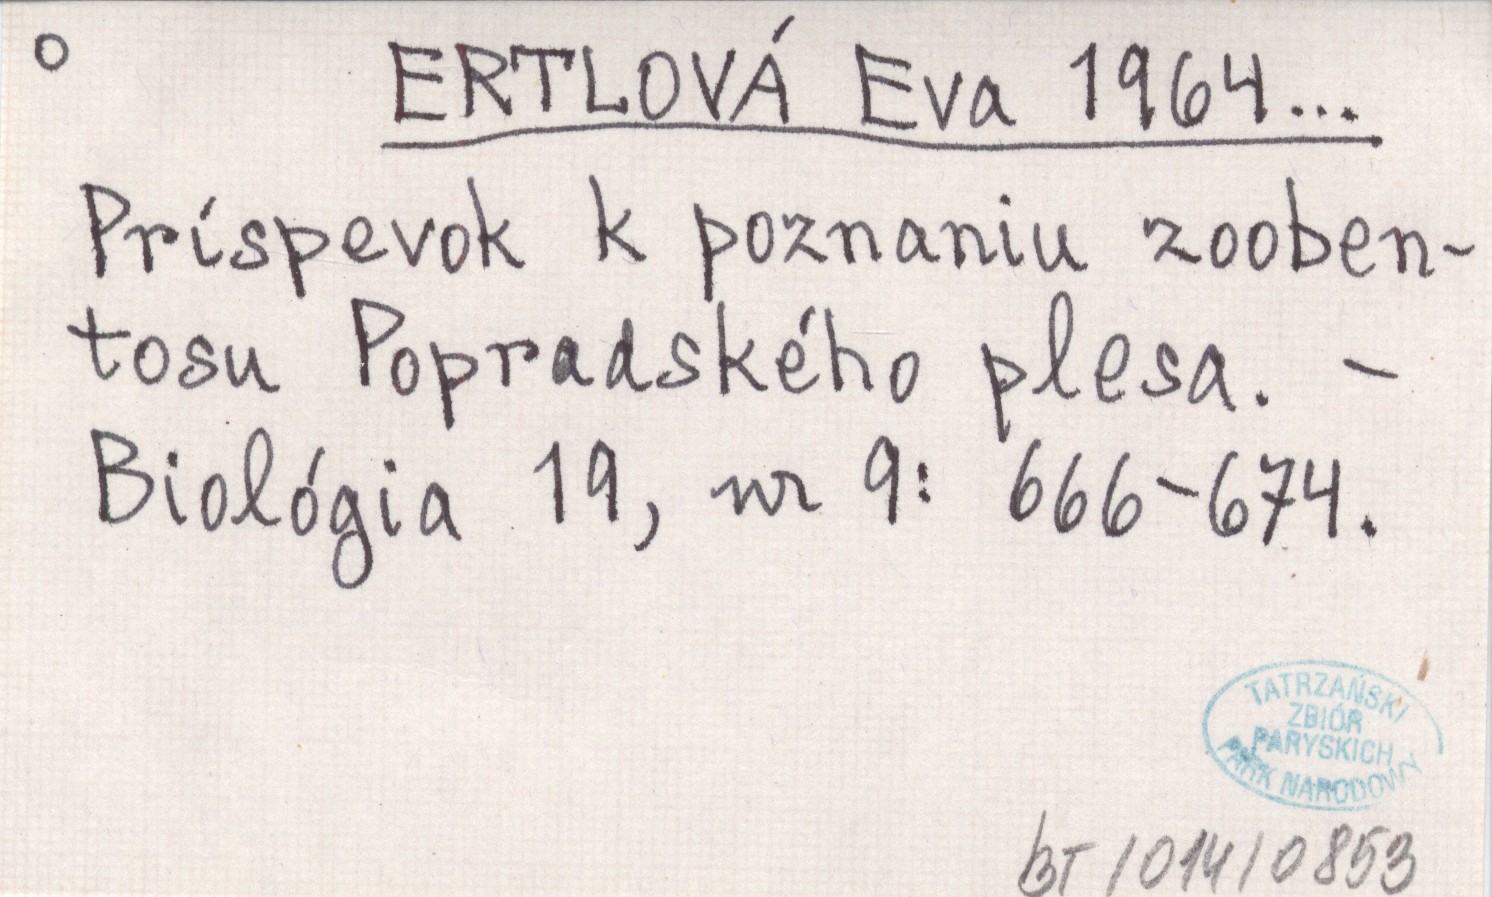 o ERTLOVÁ Eva 1964...
Príspevok k poznaniu zooben-
tosu Popradského plesa. -
Biológia 19, nr 9: 666-674.
TATRZAŃSKI
ZBIÓR
PARYSKICH
PARK NARODOWY
BT/014/0853